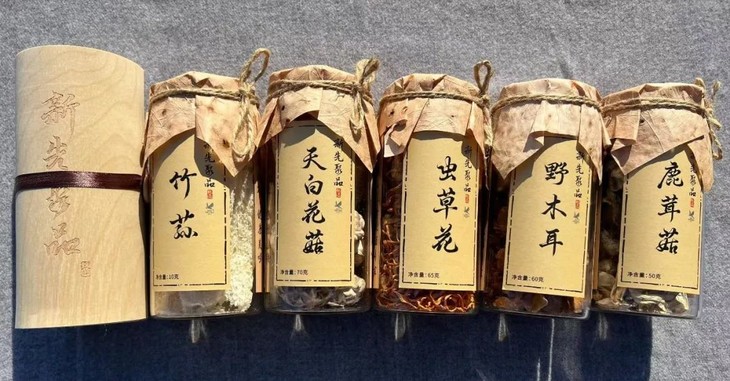 新先聚品
新先聚品
竹荪
净含量：10克
新先聚品
天白花菇
净含量：70克
新先聚品
虫草花
净含量：65克
新先聚品
野木耳
净含量：60克
新先聚品
鹿茸菇
净含量：50克